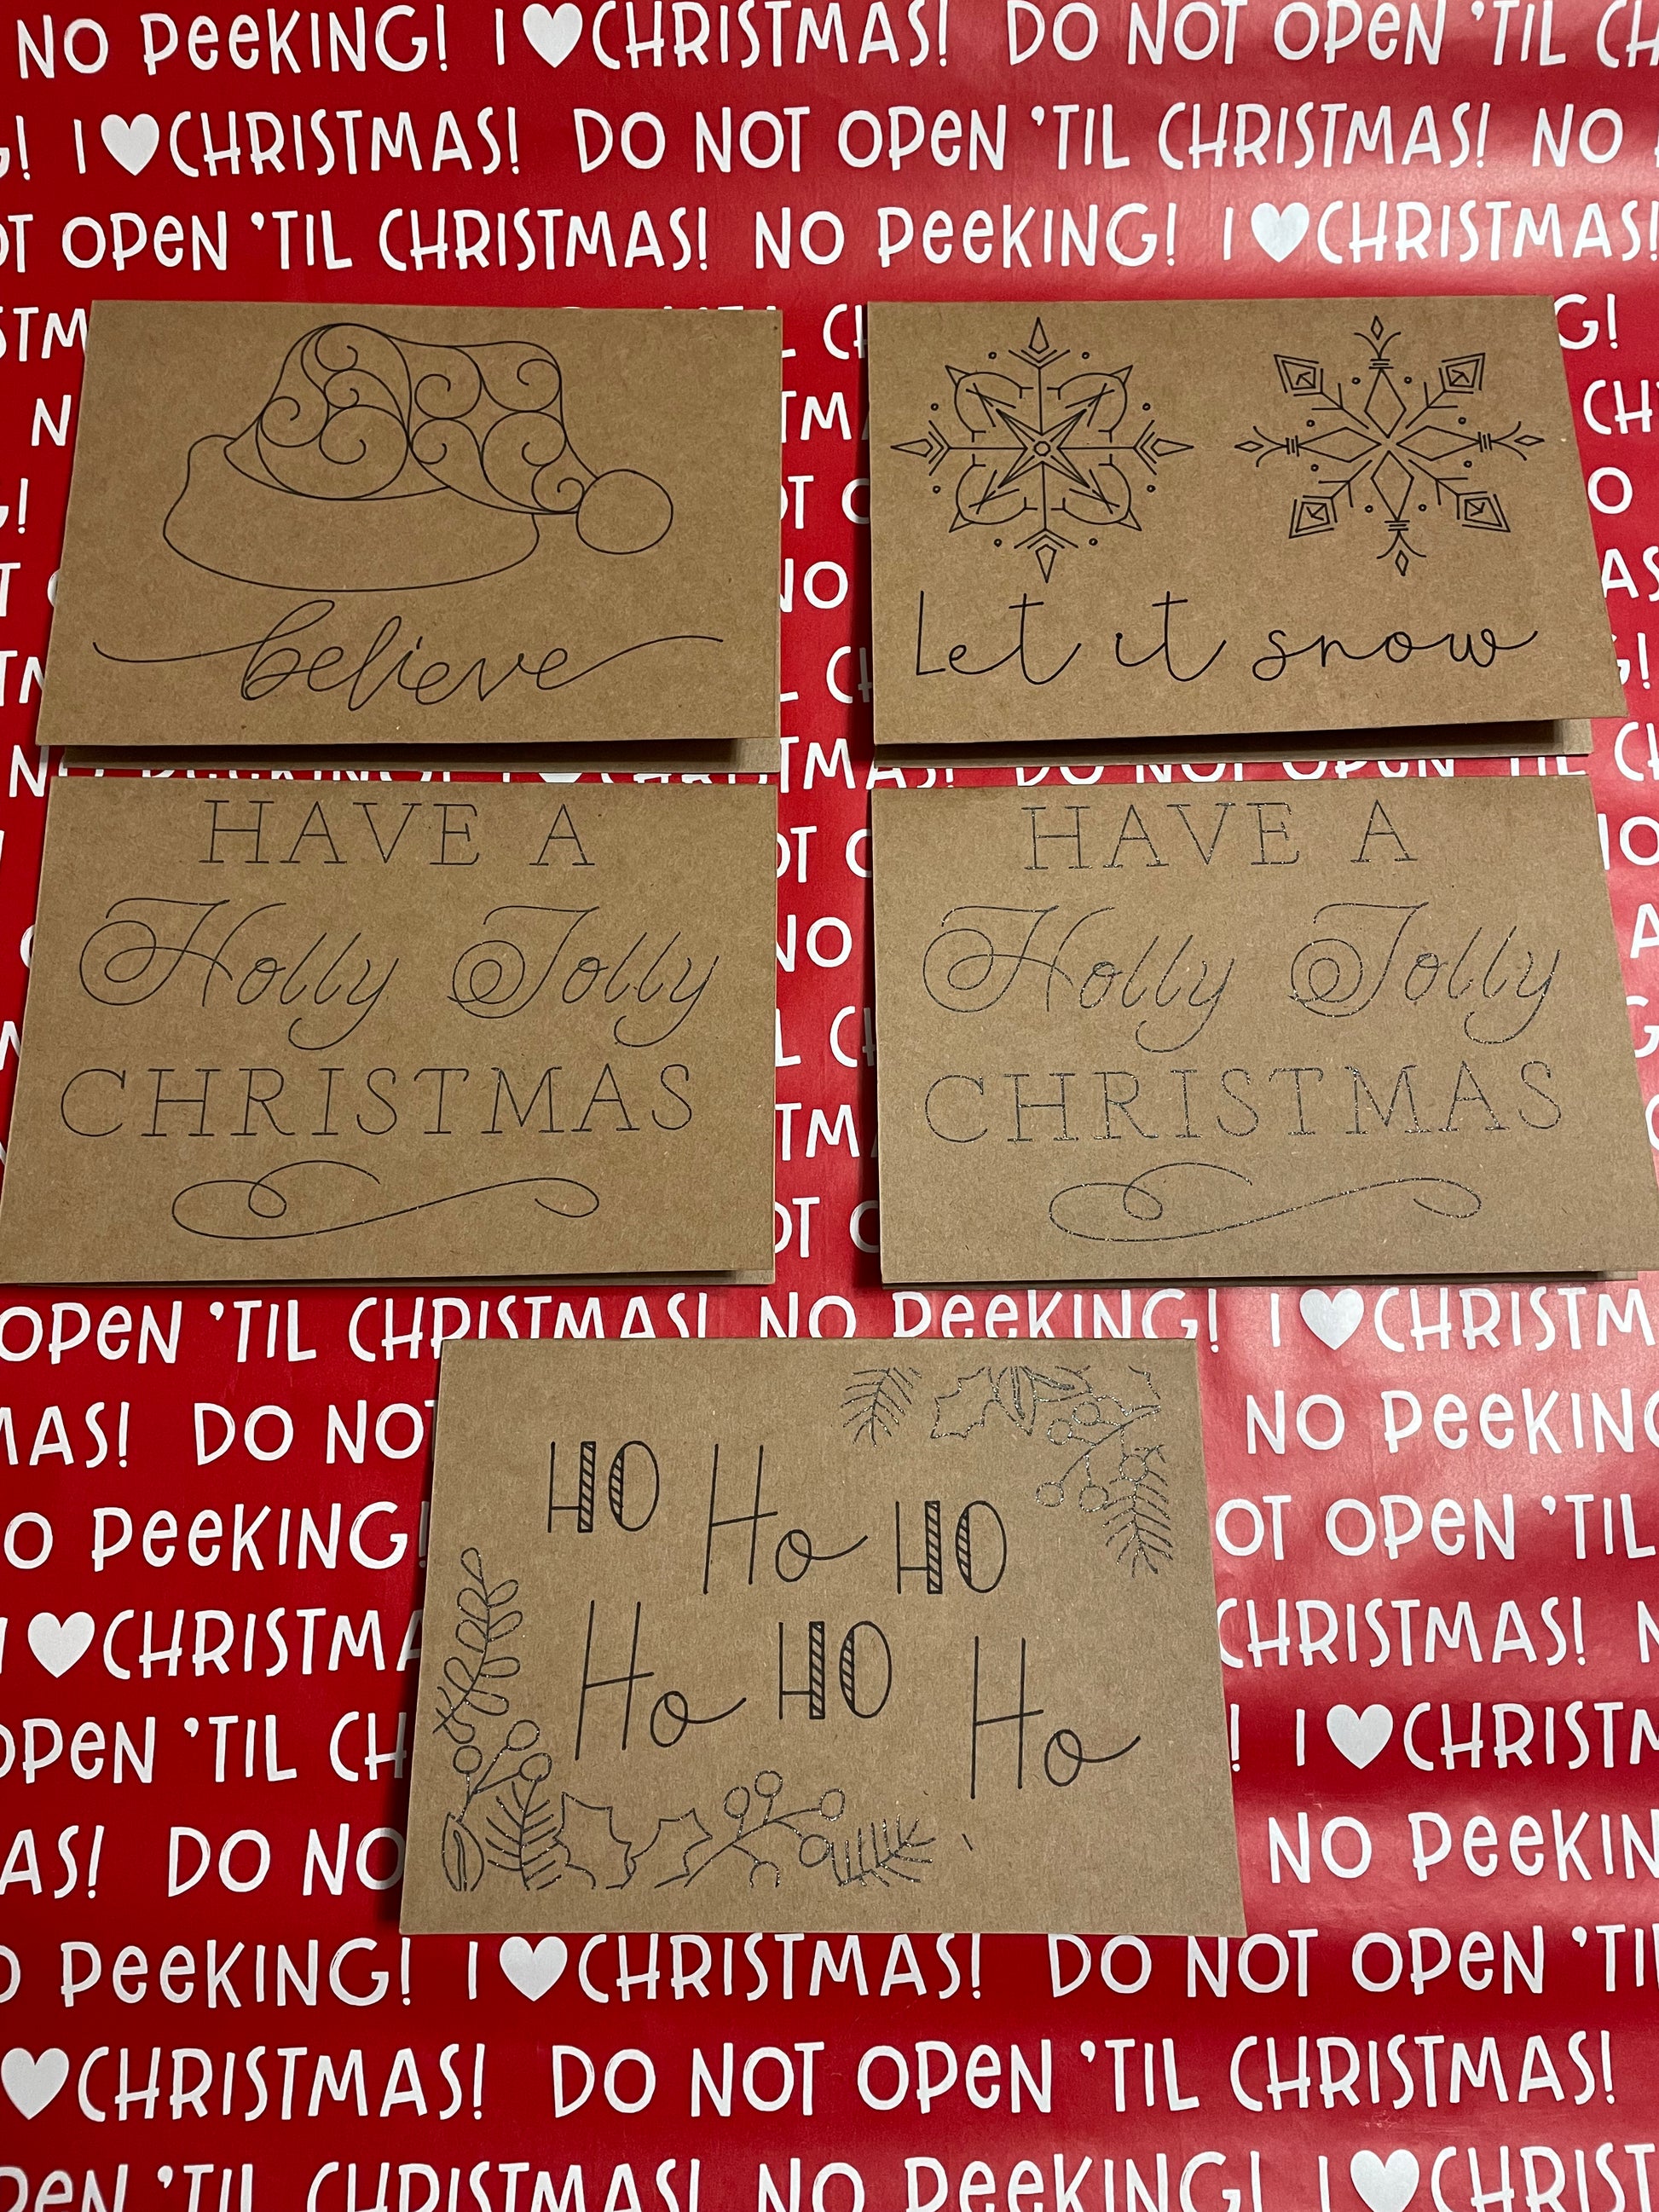 NO PEEKING! I ♥ CHRISTMAS! DO NOT OPEN 'TIL
I ♥ CHRISTMAS! DO NOT OPEN 'TIL CHRISTMAS! NO
OPEN 'TIL CHRISTMAS! NO PEEKING! I ♥ CHRISTMAS!
believe
Let it snow
HAVE A
Holly Jolly
CHRISTMAS
HAVE A
Holly Jolly
CHRISTMAS
OPEN 'TIL CHRISTMAS! NO PEEKING! I ♥ CHRISTM
MAS! DO NOT
NO PEEKING
NO PEEKING!
OT OPEN 'TIL
HO Ho HO
Ho HO Ho
I ♥ CHRISTMA
CHRISTMAS!
OPEN 'TIL CH
! I ♥ CHRISTM
AS! DO NO
NO PEEKIN
O PEEKING! I ♥ CHRISTMAS! DO NOT OPEN 'TIL
♥ CHRISTMAS! DO NOT OPEN 'TIL CHRISTMAS!
PEN 'TIL CHRISTMAS! NO PEEKING! I ♥ CHRIST